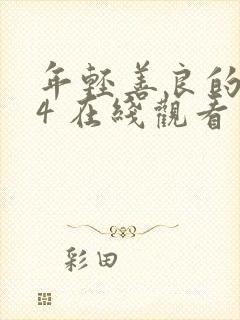 年輕善良的
4在綫觀看
彩田